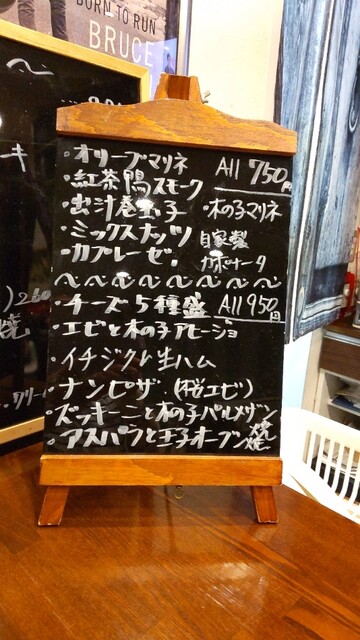 BORN TO RUN
BRUCE
・オリーブマリネ All 750円
・紅茶鴨スモーク
・出汁巻玉子 ・木の子マリネ
・ミックスナッツ 自家製
・カプレーゼ。 カポナータ
〜〜〜〜〜〜〜〜
・チーズ5種盛 All 950円
・エビと木の子アヒージョ
・イチジクと生ハム
・ナンピザ (桜エビ)
・ズッキーニと木の子パルメザン焼
・アスパラと玉子オーブン焼
キ
焼